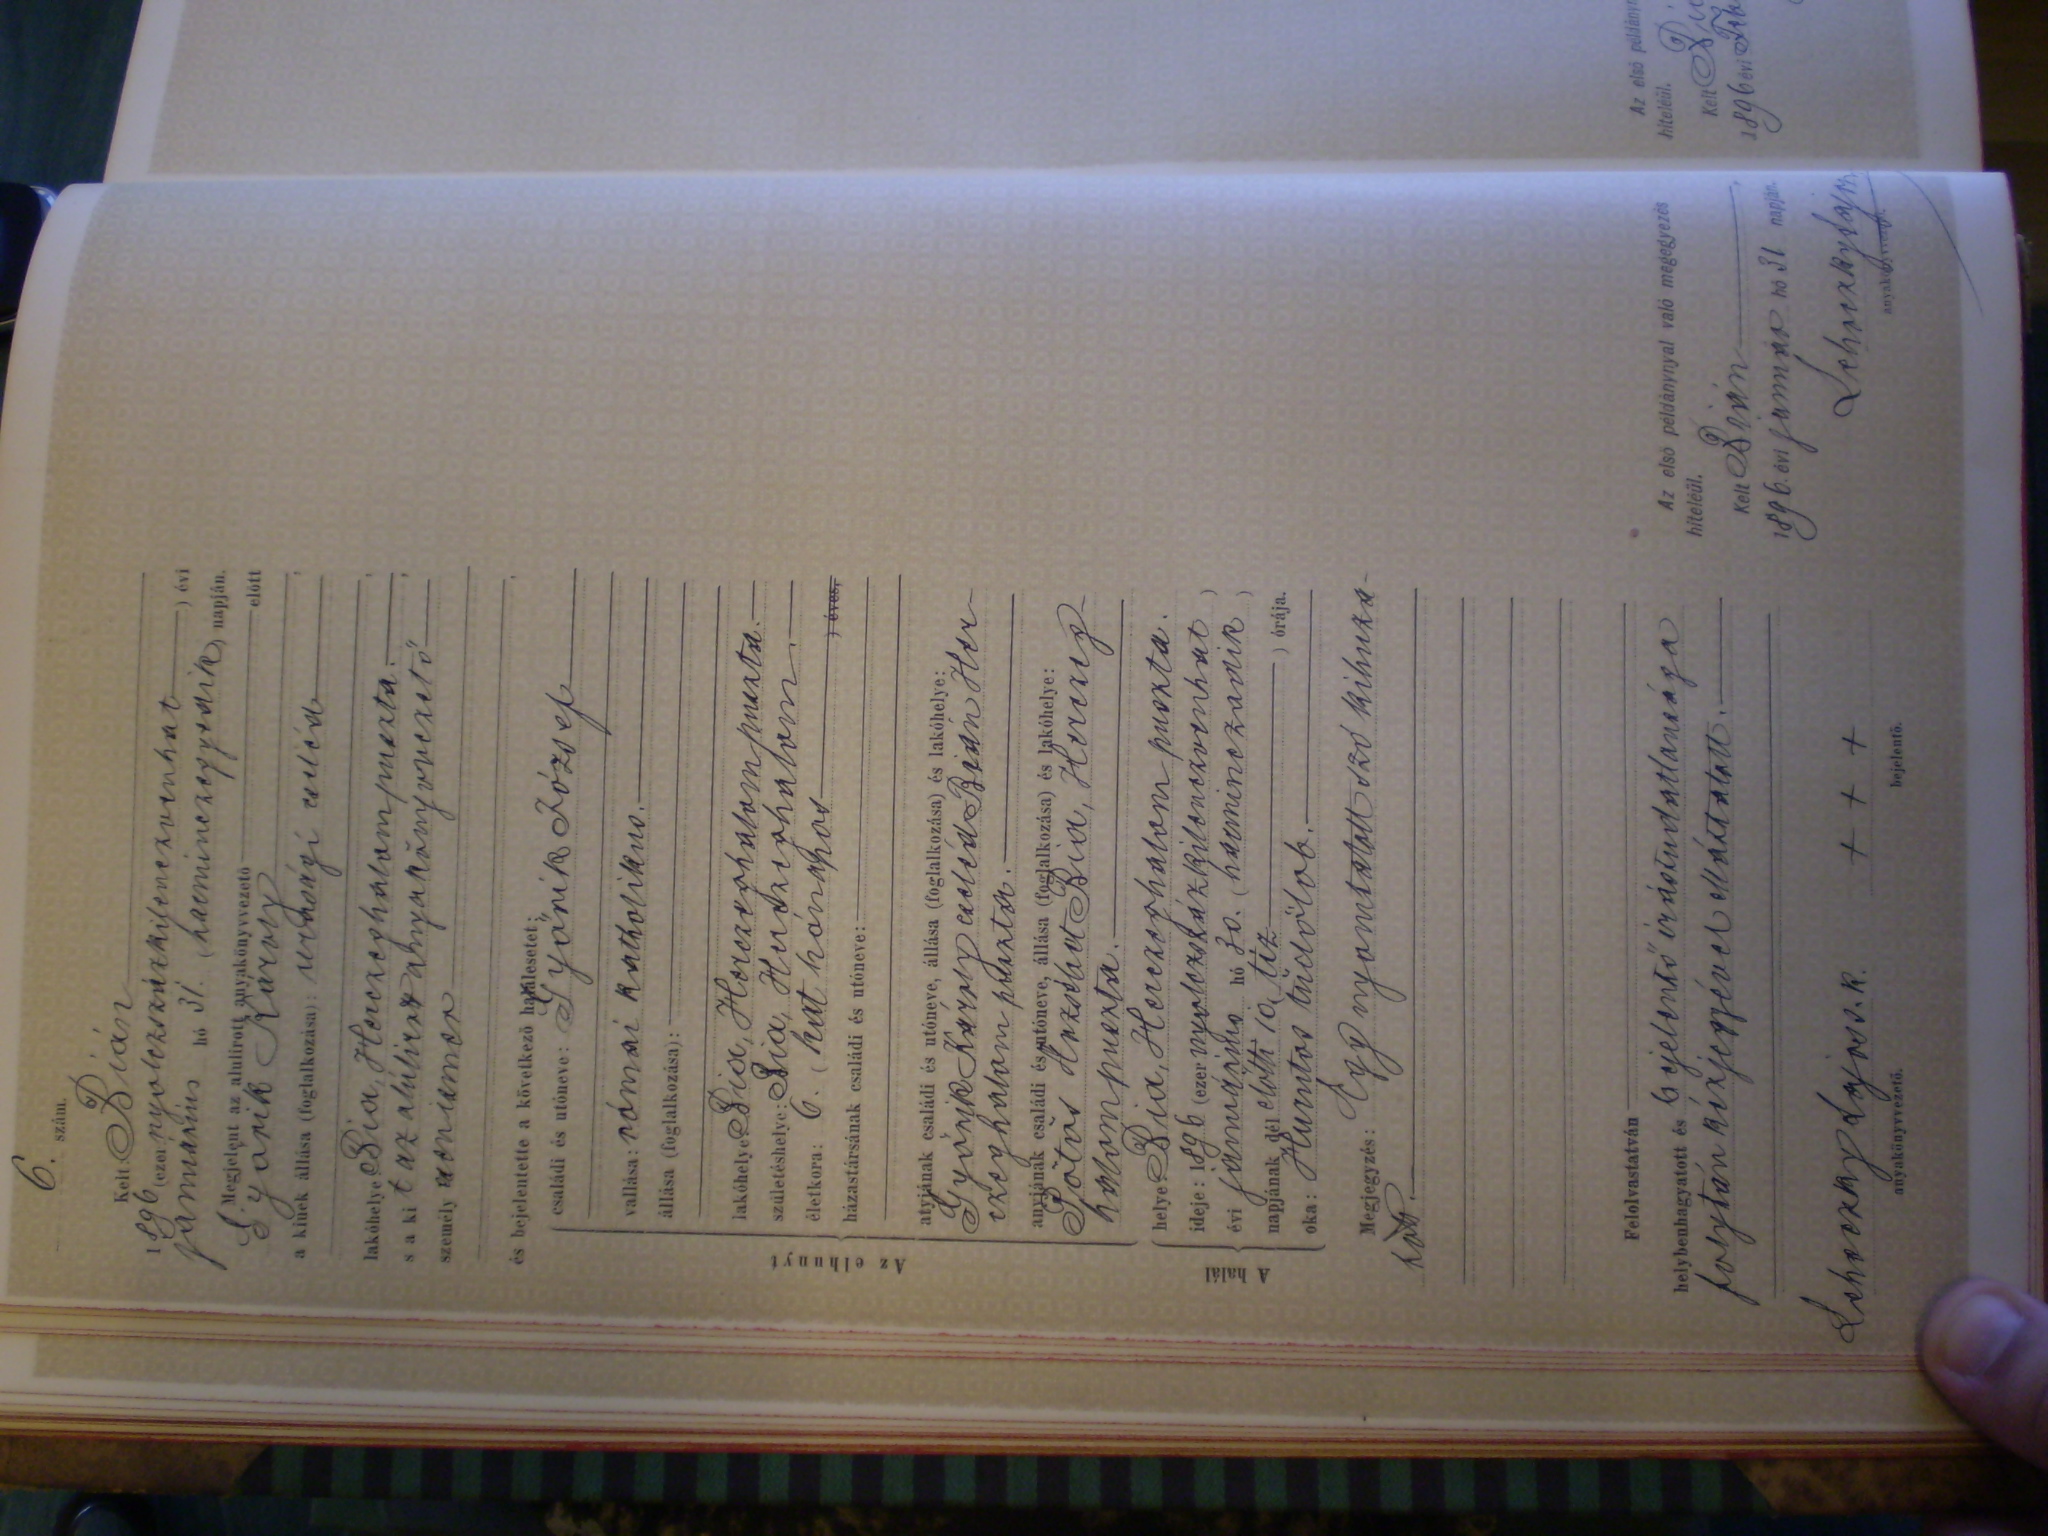 6. szám.
Kelt Bián
1896 (ezernyolczszázkilenczvenhat) évi
január hó 31. (harminczegyedik) napján.
Megjelent az alulírott anyakönyvvezető előtt
Gyönik Károly
a kinek állása (foglalkozása): urasági cseléd
lakóhelye Bia, Herczeghalom puszta.
s a kit az alulírt anyakönyvvezető
személyesen ismer
és bejelentette a következő halálesetet:
Az elhunyt
családi és utóneve: Gyönik József
vallása: római katholikus.
állása (foglalkozása):
lakóhelye Bia, Herczeghalom puszta.
születéshelye: Bia, Herczeghalom.
életkora: 6. (hat hónapos) éves,
házastársának családi és utóneve:
atyjának családi és utóneve, állása (foglalkozása) és lakóhelye:
Gyönik Károly cseléd Bián Her
czeghalom pusztán.
anyjának családi és utóneve, állása (foglalkozása) és lakóhelye:
Erzsébet Bia, Herczeg
halom puszta.
A halál
helye Bia, Herczeghalom puszta.
ideje: 1896 (ezer nyolczszázkilenczvenhat)
évi január hó 30. (harminczadik)
napjának dél előtti 10 (tíz) órája.
oka: Hurutos tüdőlob.
Megjegyzés: Egy nyomtatott szó kihuza-
tott.
Felolvastatván
helybenhagyatott és bejelentő írástudatlansága
folytán kézjegyével elláttatott.
Lehoczky Lajos s.k. + + +
anyakönyvvezető. bejelentő.
Az első példánynyal való megegyezés
hiteléül.
Kelt Bián
1896. évi január hó 31 napján.
Lehoczky Lajos
anyakönyvvezető.
Az első példányn
hiteléül.
Kelt
1896 évi